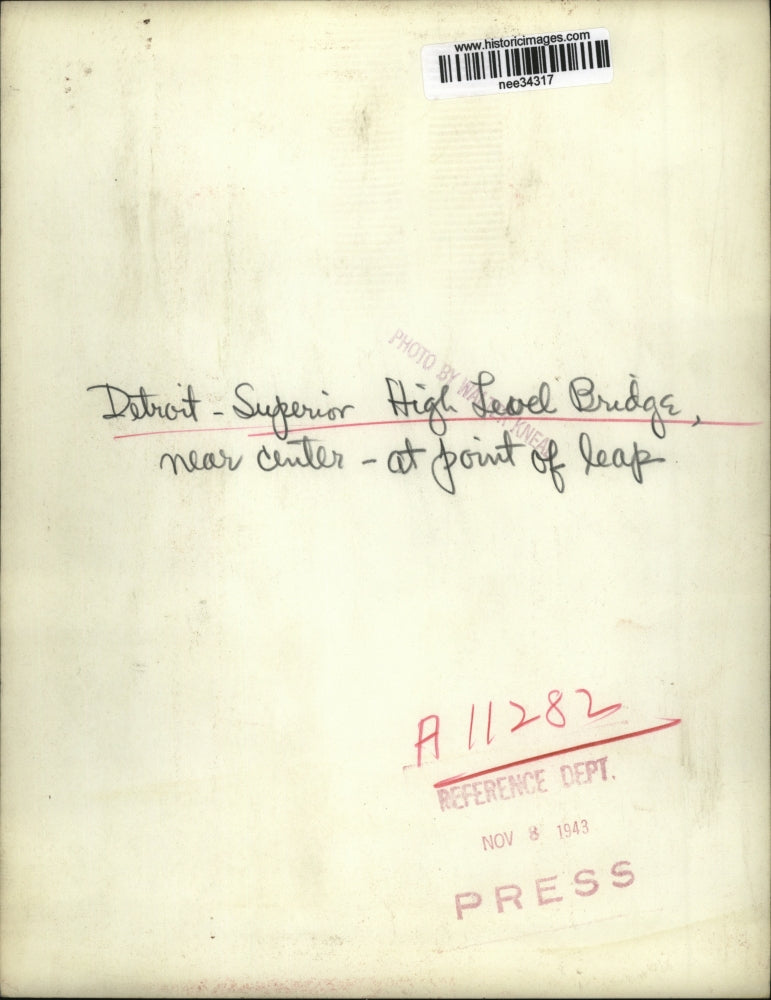 www.historicimages.com
nee34317
PHOTO BY WALTER KNEAL
Detroit - Superior High Level Bridge,
near center - at point of leap
A 11282
REFERENCE DEPT.
NOV 8 1943
PRESS